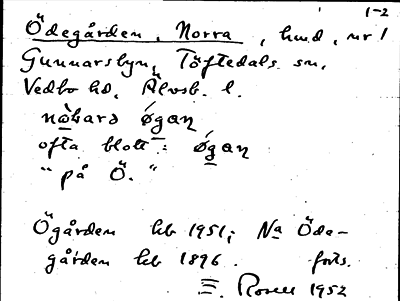 1-2
Ödegården, Norra, hmd, nr 1
Gunnarsbyn, Töftedals sn,
Vedbo hd, Älvsb. l.
nòhara ǿgan
ofta blott: ǿgan
"på Ö."
Ögården kb 1951; Na Öde-
gården kb 1896. forts.
E. Rosell 1952